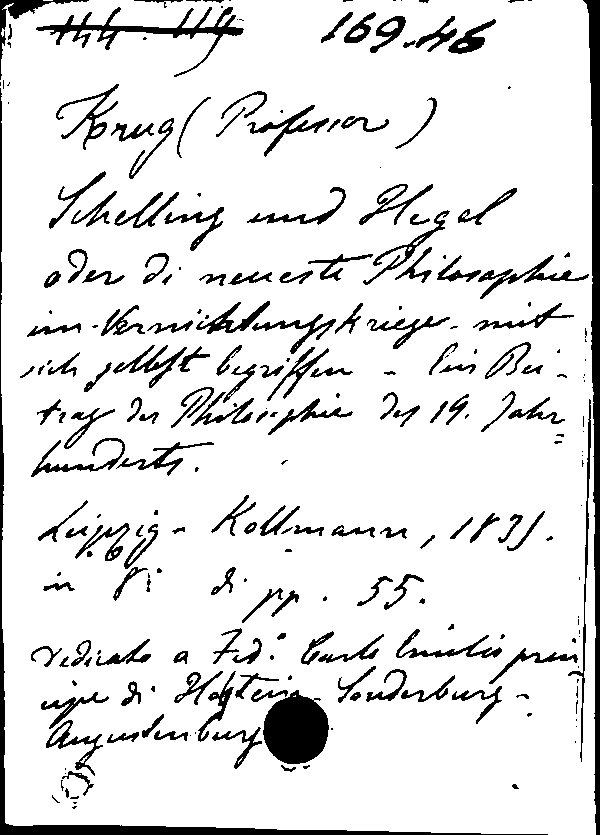 144. 119 169.46
Krug (Professor)
Schelling und Hegel
oder di neueste Philosophie
im Vernichtungskriege mit
sich selbst begriffen - Ein Bei-
trag der Philosophie des 19. Jahr=
hunderts.
Leipzig - Kollmann, 1835.
in 8: di pp. 55.
Dedicato a Fed: Carlo Emilio prin
cipe di Holstein-Sonderburg-
Augustenburg